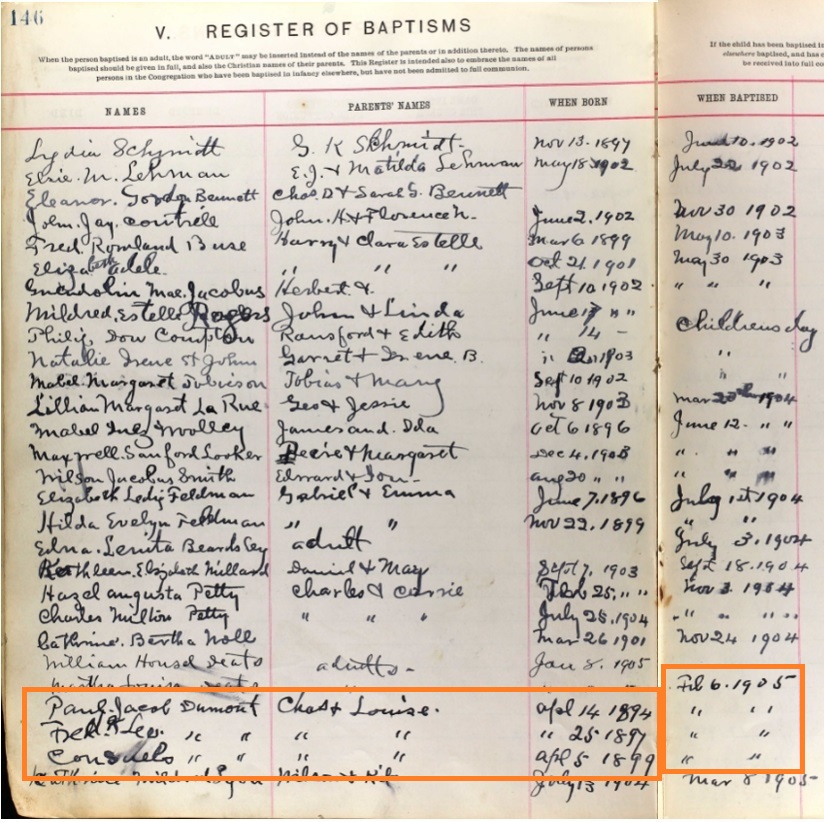 146
V. REGISTER OF BAPTISMS
When the person baptised is an adult, the word "ADULT" may be inserted instead of the names of the parents or in addition thereto. The names of persons
baptised should be given in full, and also the Christian names of their parents. This Register is intended also to embrace the names of all
persons in the Congregation who have been baptised in infancy elsewhere, but have not been admitted to full communion.
If the child has been baptised in
elsewhere baptised, and has c
be received into full co
NAMES PARENTS' NAMES WHEN BORN WHEN BAPTISED
Lydia Schmidt G. K Schmidt- Nov 13. 1897 June 10. 1902
Elsie. M. Lehman E.J. & Matilda Lehman May 18 1902 July 1902
Eleanor. Gordon Bennett Chas. D & Sarah G. Bennett
John. Jay. Cottrell John. H & Florence N. June 2. 1902 Nov 30 1902
Fred. Rowland Buse Harry & Clara Estelle Mar 6 1899 May 10. 1903
Elizabeth Adele. " " " Oct 21. 1901 May 30 1903
Gwendolin Mae. Jacobus Herbert &. Sept 10. 1902 " " "
Mildred. Estelle Rogers John & Linda June " " Childrens day
Philip Dow Compton Ransford & Edith " 14 -
Natalie Irene St John Garret & Irene B. " 1903 "
Mabel. Margaret Tobieson Tobias & Mary Sept 10 1902 " "
Lillian Margaret La Rue Geo & Jessie Nov 8 1903 Mar 1904
Mabel Inez Woolley James and. Ida Oct 6 1896 June 12- " "
Maxwell. Sanford Looker & Margaret Dec 4. 1903 " " "
Wilson Jacobus Smith Edward & Aug 20 " " " " "
Elizabeth Feldman Gabriel & Emma June 7. 1896 July 1st 1904
Hilda Evelyn Feldman " " Nov 22. 1899 " "
Edna. Lenita Beardsley adult July 3. 1904
Kathleen. Elizabeth Millard Daniel & May Sept 7. 1903 Sept 18. 1904
Hazel Augusta Petty Charles & Carrie Feb 25. " " Nov 3. 1904
Charles Milton Petty " " " July 28. 1904 " " "
Cathrine. Bertha Noll Mar 26 1901 Nov 24 1904
William Housel Deats adults - Jan 8. 1905
Martha Louise Deats Feb 6. 1905
Paul. Jacob Dumont Chas & Louise. Apl 14 1894 " " "
Fred. " " " " " 25 1897 " "
Consuelo " " " " Apl 5 1899 " "
Katherine Mildred July 13 1904 Mar 8 1905